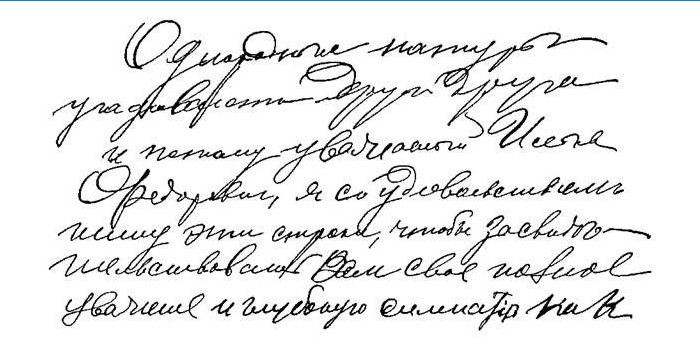 Однородные натуры
угадывают друг друга
и потому уважаемый Илья
Федорович, я со удовольствием
пишу эти строки, чтобы засвидѣ-
тельствовать Вам свое полное
уважение и глубокую симпатiю как